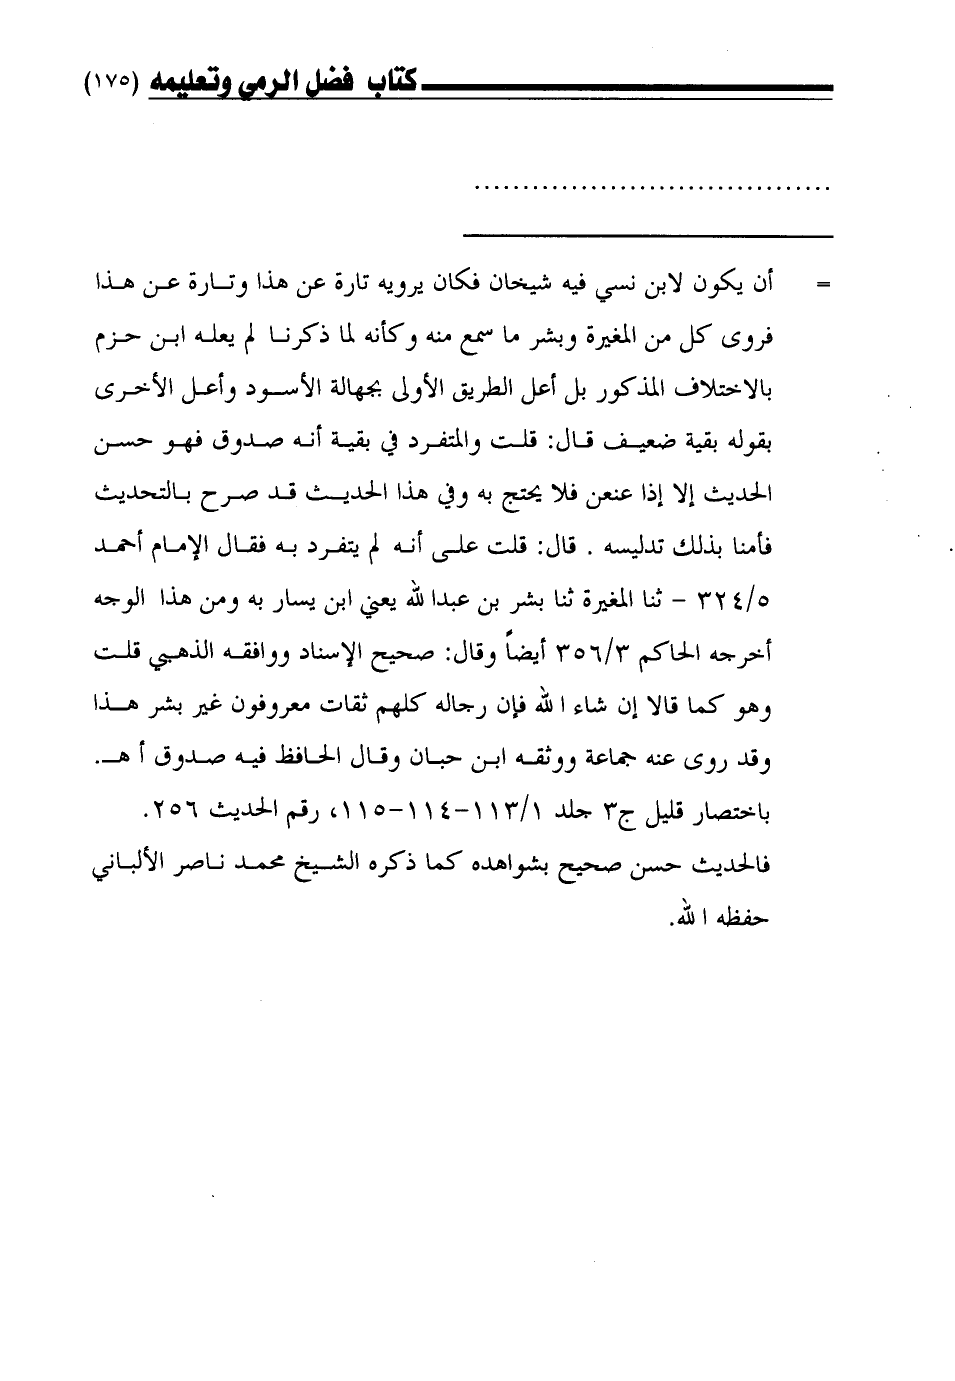 كتاب فضل الرمي وتعليمه (١٧٥)
....................................
= أن يكون لابن نسي فيه شيخان فكان يرويه تارة عن هذا وتارة عن هذا
فروى كل من المغيرة وبشر ما سمع منه وكأنه لما ذكرنا لم يعله ابن حزم
بالاختلاف المذكور بل أعل الطريق الأولى بجهالة الأسود وأعل الأخرى
بقوله بقية ضعيف قال: قلت والمتفرد في بقية أنه صدوق فهو حسن
الحديث إلا إذا عنعن فلا يحتج به وفي هذا الحديث قد صرح بالتحديث
فأمنا بذلك تدليسه . قال: قلت على أنه لم يتفرد به فقال الإمام أحمد
٣٢٤/٥ - ثنا المغيرة ثنا بشر بن عبدالله يعني ابن يسار به ومن هذا الوجه
أخرجه الحاكم ٣٥٦/٣ أيضاً وقال: صحيح الإسناد ووافقه الذهبي قلت
وهو كما قالا إن شاء الله فإن رجاله كلهم ثقات معروفون غير بشر هذا
وقد روى عنه جماعة ووثقه ابن حبان وقال الحافظ فيه صدوق أ هـ.
باختصار قليل ج٣ جلد ١١٣/١-١١٤-١١٥، رقم الحديث ٢٥٦.
فالحديث حسن صحيح بشواهده كما ذكره الشيخ محمد ناصر الألباني
حفظه الله.